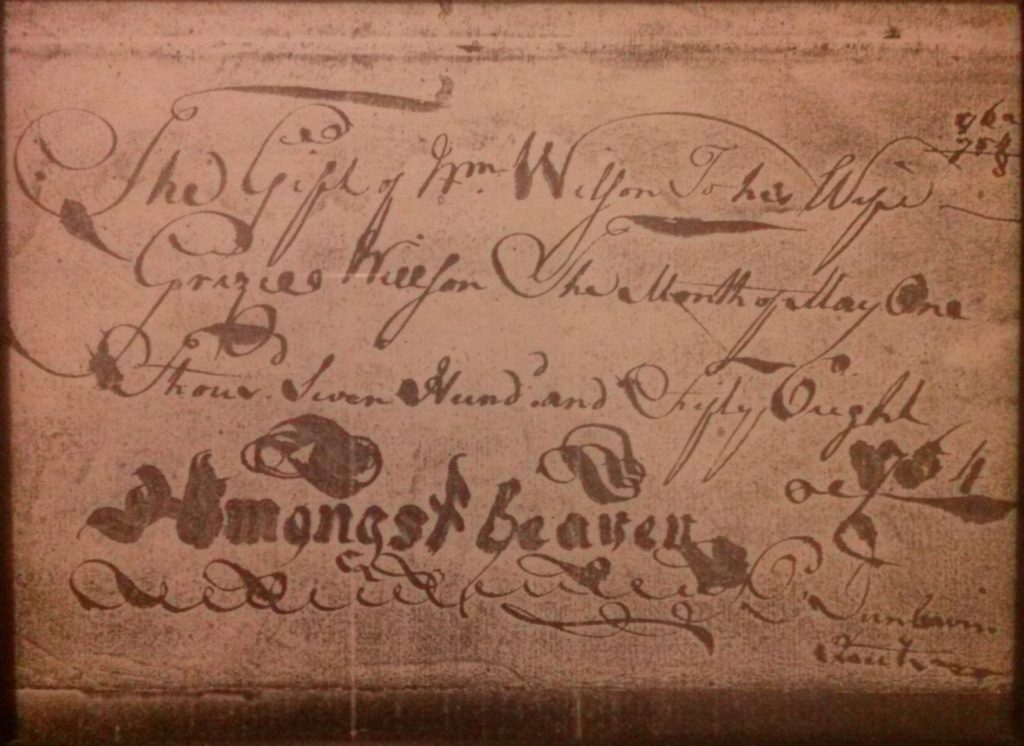 The Gift of Wm Wilson To his Wife
Grizies Willson The Month of May One
Thous. Seven Hund. and Fifty Eight
Amongst heaven